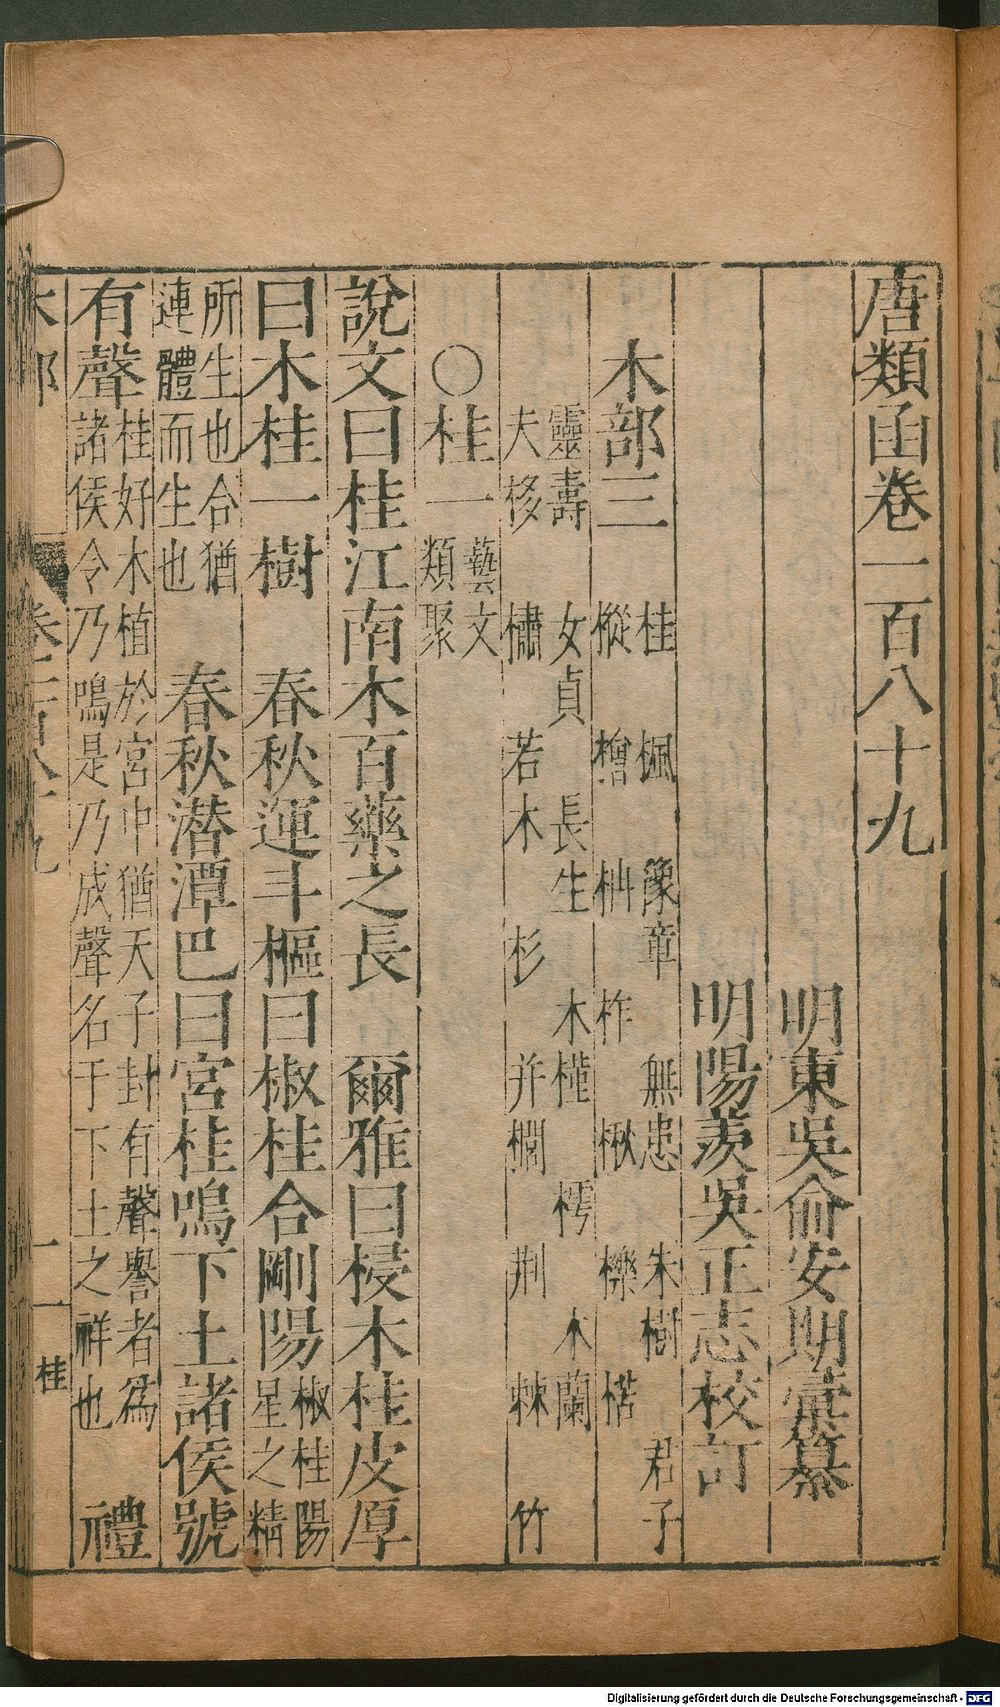 唐類函卷一百八十九
明東吳俞安期彙纂
明陽羨吳正志校訂
木部三
桂 楓 豫章 無患 朱樹 君子
樅 檜 柟 柞 楸 櫟 楛
靈壽 女貞 長生 木槿 樗 木蘭
夫栘 橚 若木 杉 并櫚 荆 棘 竹
○桂一 藝文
類聚
說文曰桂江南木百藥之長 爾雅曰梫木桂皮厚
曰木桂一樹 春秋運斗樞曰椒桂合剛陽 椒桂陽
星之精
所生也合猶
連體而生也 春秋潛潭巴曰宮桂鳴下土諸侯號
有聲 桂好木植於宮中猶天子封有聲譽者爲
諸侯令乃鳴是乃成聲名于下土之祥也 禮
木部 卷一百八十九 一 桂
Digitalisierung gefördert durch die Deutsche Forschungsgemeinschaft - DFG